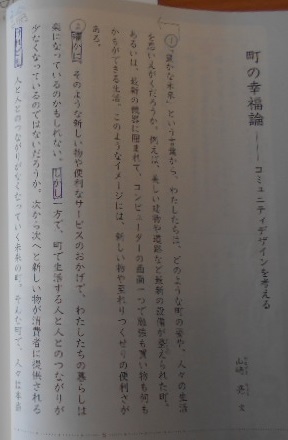 町の幸福論
――コミュニティデザインを考える
山崎 亮 文
① 「豊かな未来」という言葉から、わたしたちは、どのような町の姿や、人々の生活
を思いえがくだろうか。例えば、美しい建物や道路など最新の設備が整えられた町。
あるいは、最新の機器に囲まれて、コンピューターの画面一つで勉強も買い物も何も
かもができる生活。このようなイメージには、新しい物や至れりつくせりの便利さが
ある。
② 確かに、そのような新しい物や便利なサービスのおかげで、わたしたちの暮らしは
楽になっているのかもしれない。しかし一方で、町で生活する人と人とのつながりが
少なくなっているのではないだろうか。次から次へと新しい物が消費者に提供される
人と人とのつながりがなくなっていく未来の町。そんな町で、人々は本当